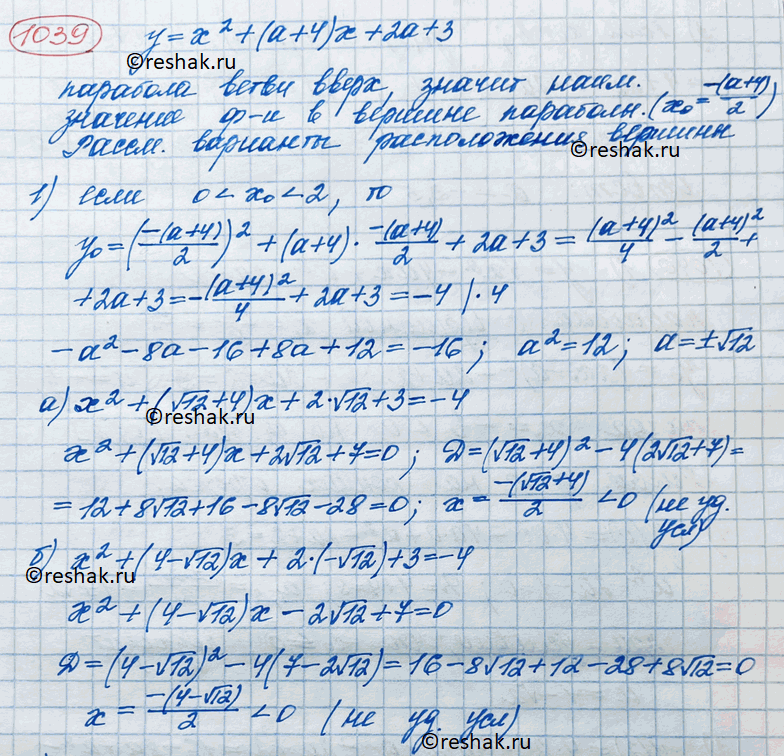 1039 y=x²+(a+4)x+2a+3
©reshak.ru
парабола ветви вверх, значит наим.
значение ф-и в вершине параболы. (x₀=-(a+4)/2)
Рассм. варианты расположения вершины
©reshak.ru
1) если 0<x₀<2, то
y₀=(-(a+4)/2)²+(a+4)·-(a+4)/2+2a+3=(a+4)²/4-(a+4)²/2+
+2a+3=-(a+4)²/4+2a+3=-4 |·4
-a²-8a-16+8a+12=-16; a²=12; a=±√12
а) x²+(√12+4)x+2·√12+3=-4
©reshak.ru
x²+(√12+4)x+2√12+7=0; Д=(√12+4)²-4(2√12+7)=
=12+8√12+16-8√12-28=0; x=-(√12+4)/2<0 (не уд.
усл)
б) x²+(4-√12)x+2·(-√12)+3=-4
©reshak.ru
x²+(4-√12)x-2√12+7=0
Д=(4-√12)²-4(7-2√12)=16-8√12+12-28+8√12=0
x=-(4-√12)/2<0 (не уд. усл)
©reshak.ru